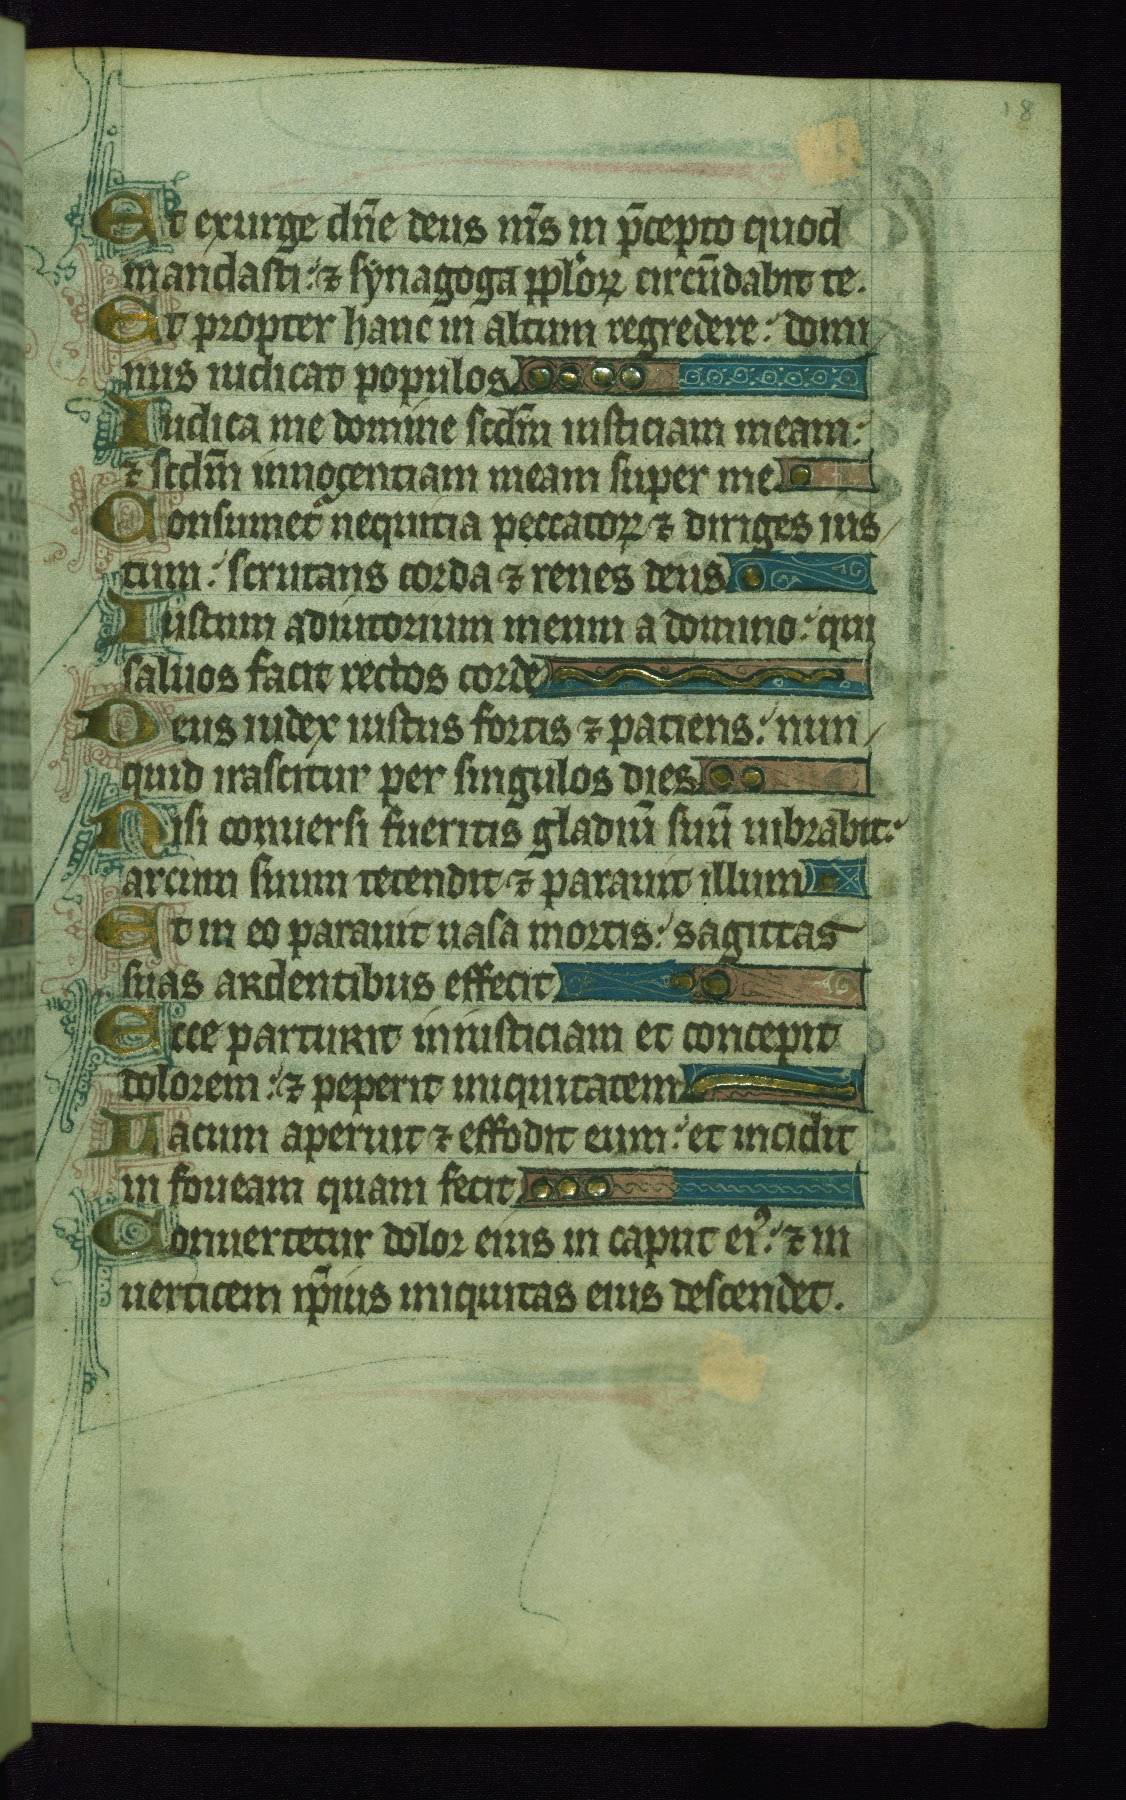 18
Et exurge dn̄e deus nr̄s in p̄cepto quod
mandasti: ⁊ synagoga pp̄loꝝ circūdabit te.
Et propter hanc in altum regredere: domi
nus iudicat populos
Iudica me domine scdm̄ iusticiam meam:
⁊ scdm̄ innocentiam meam super me
Consumet᷑ nequitia peccatoꝝ ⁊ diriges ius
tum: scrutans corda ⁊ renes deus
Iustum adiutorium meum a domino: qui
saluos facit rectos corde
Deus iudex iustus fortis ⁊ patiens: nun
quid irascitur per singulos dies
Nisi conuersi fueritis gladiū suū uibrabit:
arcum suum tetendit ⁊ parauit illum
Et in eo parauit uasa mortis: sagittas
suas ardentibus effecit
Ecce parturit iniusticiam et concepit
dolorem: ⁊ peperit iniquitatem
Lacum aperuit ⁊ effodit eum: et incidit
in foueam quam fecit
Conuertetur dolor eius in caput eiꝰ: ⁊ in
uerticem ip̄ius iniquitas eius descendet.